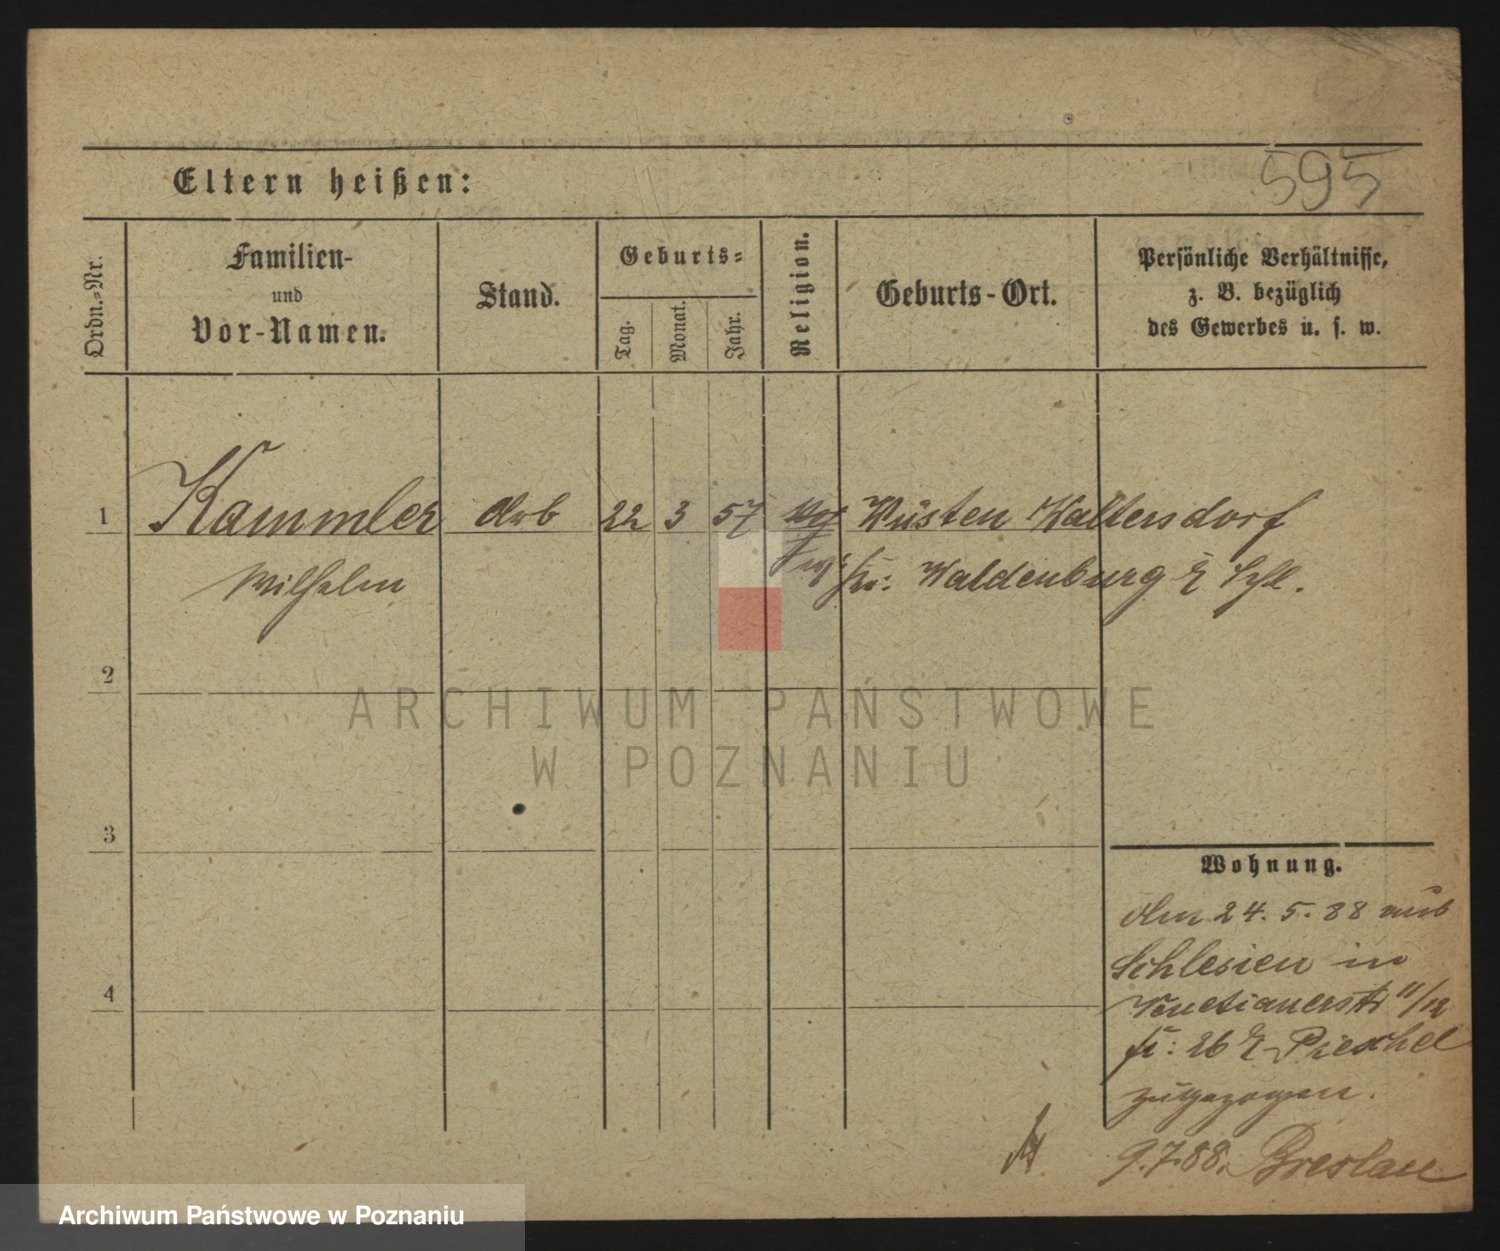 595
Eltern heißen:
Ordn.-Nr.
Familien-
und
Vor-Namen.
Stand.
Geburts-
Tag.
Monat.
Jahr.
Religion.
Geburts-Ort.
Persönliche Verhältnisse,
z. B. bezüglich
des Gewerbes u. s. w.
1 Kammler Arb 22 3 57 Wüsten Waltersdorf
Wilhelm Kr: Waldenburg i/ Schl.
2
3
4
Wohnung.
Am 24. 5. 88 aus
Schlesien in
Venetianerstr 11/12
bei Pieschel
zugezogen.
9.7.88. Breslau
ARCHIWUM PAŃSTWOWE
W POZNANIU
Archiwum Państwowe w Poznaniu